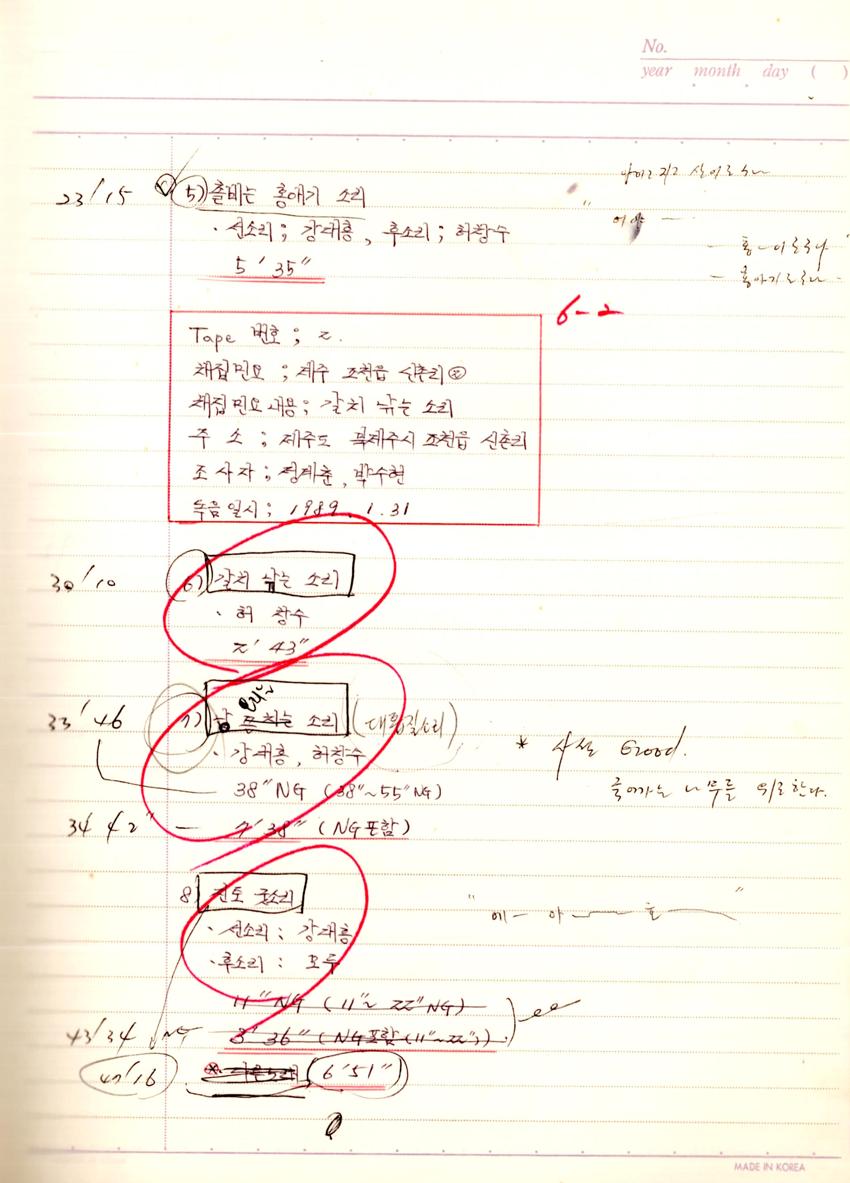 No.
year month day ( )
23/15 5) 출비는 홍애기 소리
· 선소리; 강대흥, 후소리; 허창수
5′35″
" 어야 —
— 홍—이로구나 "
— 홍아기로구나 —
6-2
Tape 번호; 2.
채집민요 ; 제주 조천읍 신촌리②
채집민요내용; 갈치 낚는 소리
주 소 ; 제주도 북제주시 조천읍 신촌리
조 사 자 ; 정계춘, 박수현
녹음일시; 1989. 1. 31
30/10 6) 갈치 낚는 소리
· 허 창수
2′43″
33′46 7) 소리
· 강대흥, 허창수
38″NG (38″~55″NG)
* 사설 Good.
34′42″ — 7′38″ (NG포함)
8)
· 선소리: 강대흥
· 후소리: 모두
" 에— 아— 호— "
11″NG (11″~22″NG)
43/34 NG 8′36″ (NG포함 (11″~22″))
47/16 6′51″
MADE IN KOREA